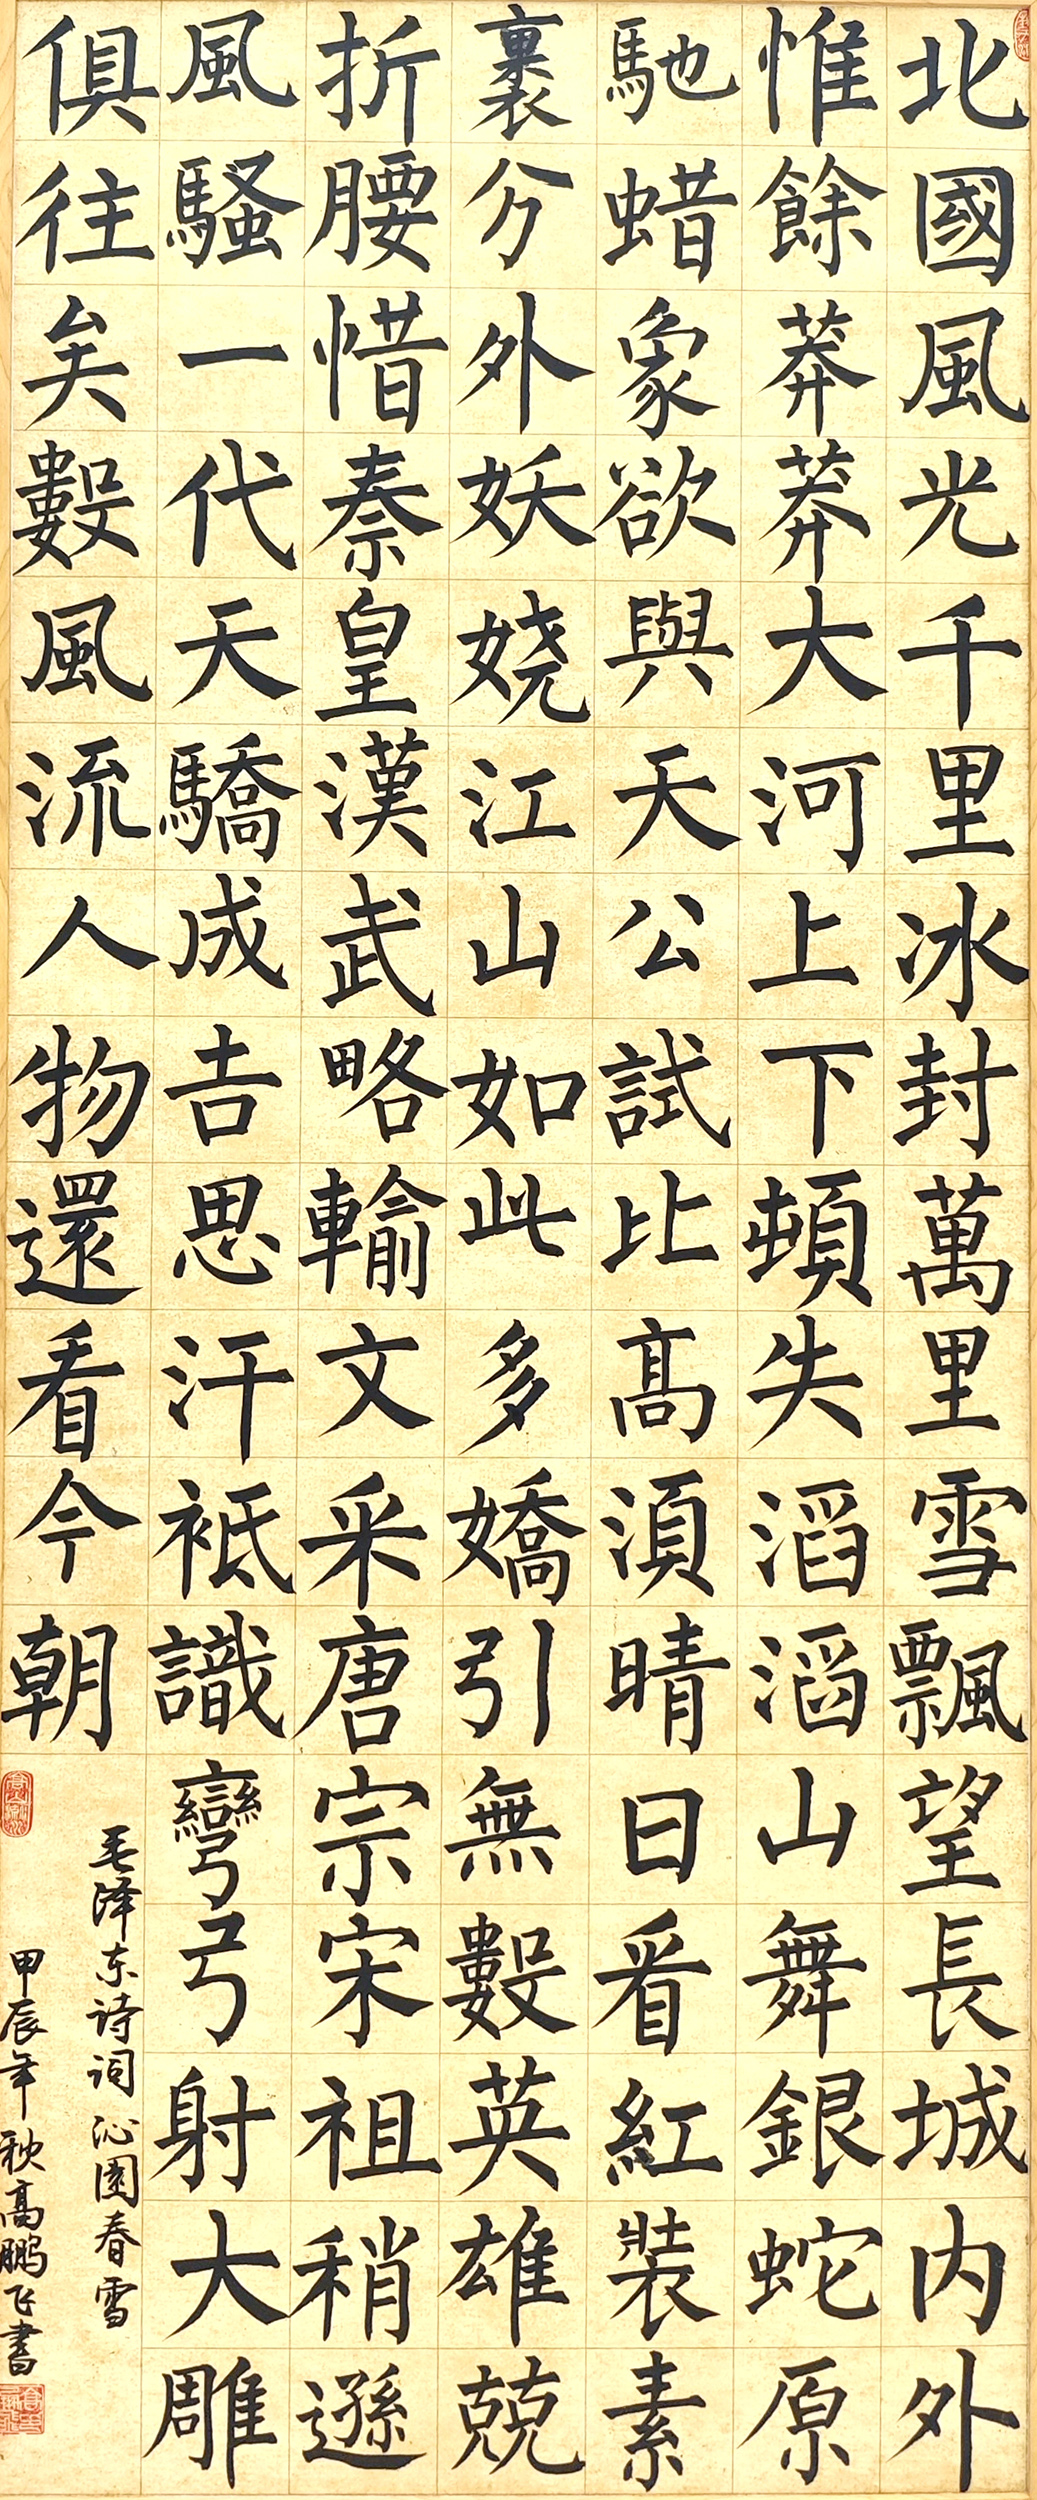 北國風光千里冰封萬里雪飄望長城内外
惟餘莽莽大河上下頓失滔滔山舞銀蛇原
馳蜡象欲與天公試比髙湏晴日看紅裝素
裹分外妖娆江山如此多嬌引無數英雄兢
折腰惜秦皇漢武略輸文采唐宗宋祖稍遜
風騷一代天驕成吉思汗袛識彎弓射大雕
俱往矣數風流人物還看今朝
毛泽东诗词沁園春雪
甲辰年秋髙鹏飞書